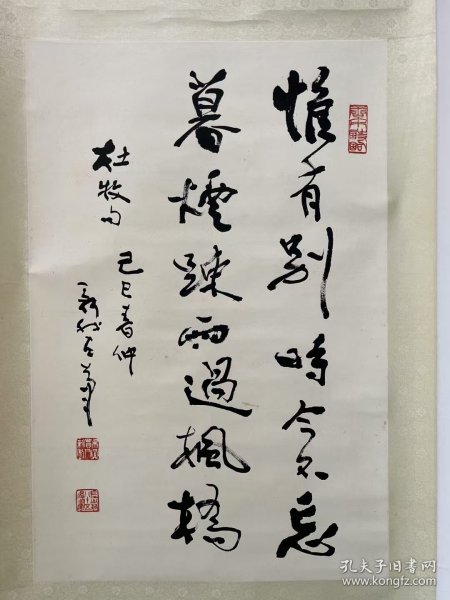 惟有别時今不忘
暮煙踈雨過楓橋
杜牧句 己巳春仲
孔夫子旧书网
www.kongfz.com